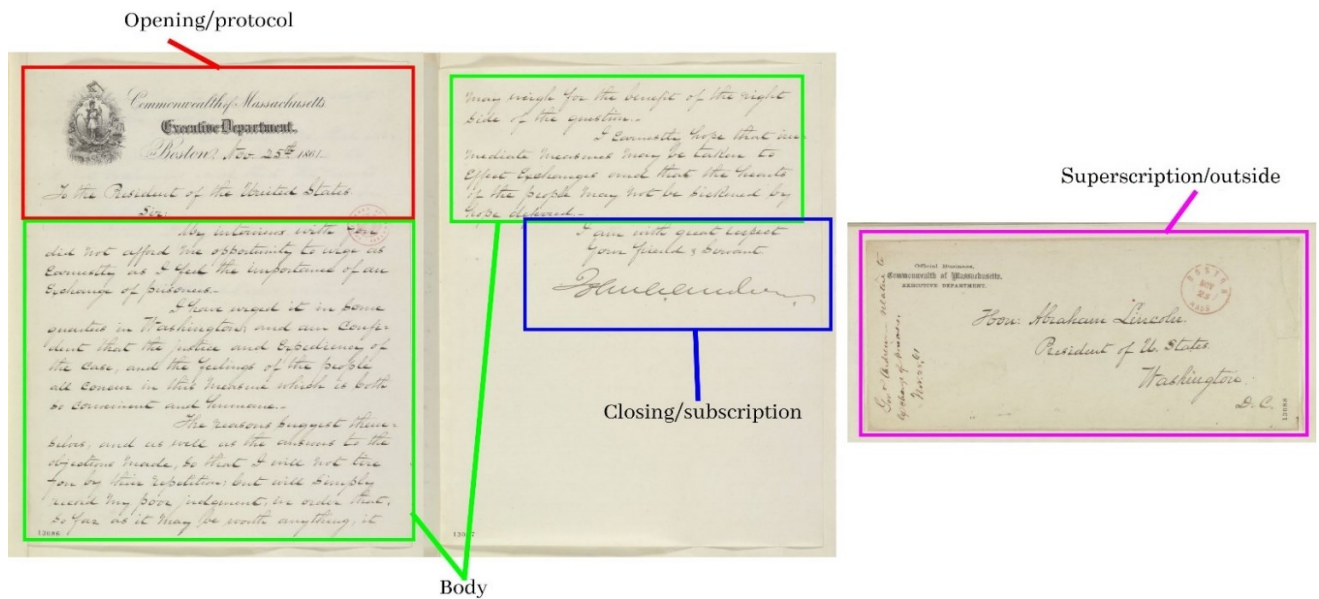 Opening/protocol
Commonwealth of Massachusetts
Executive Department.
Boston, Nov 25th 1861
To the President of the United States
Sir:
My interview with you
did not afford me opportunity to urge as
earnestly as I feel the importance of an
exchange of prisoners.
I have urged it in some
quarters in Washington, and am confi-
dent that the justice and expediency of
the case, and the feelings of the people
all concur in this measure which is both
so convenient and humane.
The reasons suggest them-
selves, and as well as the answers to the
objections made, so that I will not tire
you by their repetition; but will simply
record my poor judgment, in order that,
so far as it may be worth anything, it
13686
may weigh for the benefit of the right
side of the question.
I earnestly hope that im-
mediate measures may be taken to
effect exchanges and that the hearts
of the people may not be sickened by
hope deferred.
I am with great respect
Your friend & servant
Body
Closing/subscription
Superscription/outside
Official Business,
Commonwealth of Massachusetts,
EXECUTIVE DEPARTMENT.
BOSTON
NOV
MASS
Hon. Abraham Lincoln.
President of U. States
Washington
D.C.